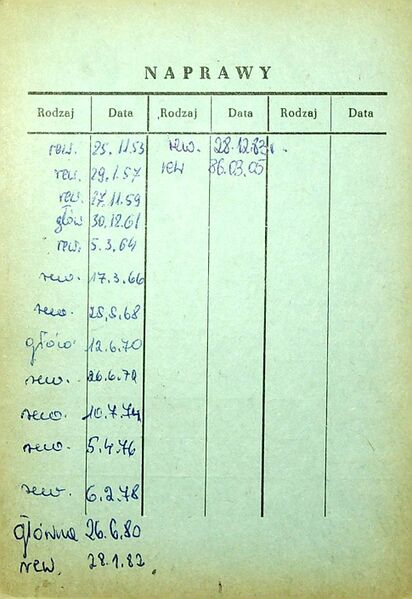 NAPRAWY
Rodzaj Data Rodzaj Data Rodzaj Data
rew. 25.1153 rew. 28.12.83r.
rew. 29.1.57 rew 86.03.05
rew. 27.11.59
głów 30.12.61
rew. 5.3.64
rew. 17.3.66
rew. 25.5.68
główn. 12.6.70
rew. 26.6.72
rew. 10.7.74
rew. 5.4.76
rew. 6.2.78
główna 26.6.80
rew. 28.1.82